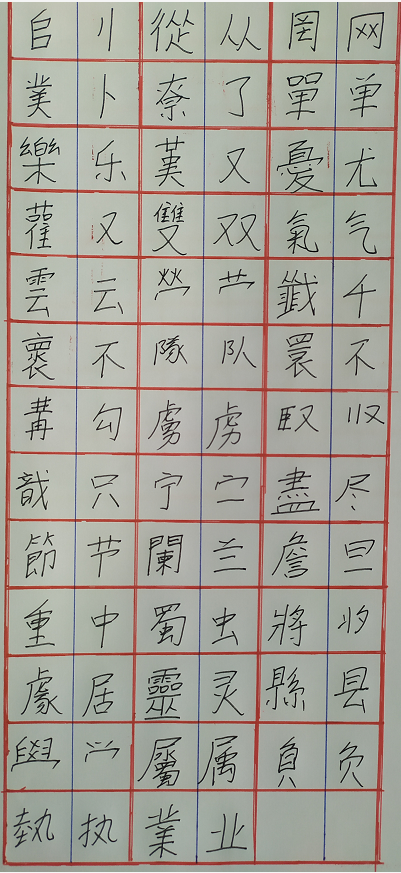 𠂤 刂 從 从 网
菐 卜 尞 了 單 单
樂 乐 𦰩 又 憂 尤
雚 又 雙 双 氣 气
雲 云 𤇾 籤 千
褱 不 隊 队 睘 不
冓 勾 虜 虏 臤
戠 只 宁 㝉 盡 尽
節 节 闌 兰 詹 旦
重 中 蜀 虫 將
豦 居 靈 灵 縣 县
𦥯 屬 属 負 负
執 执 業 业